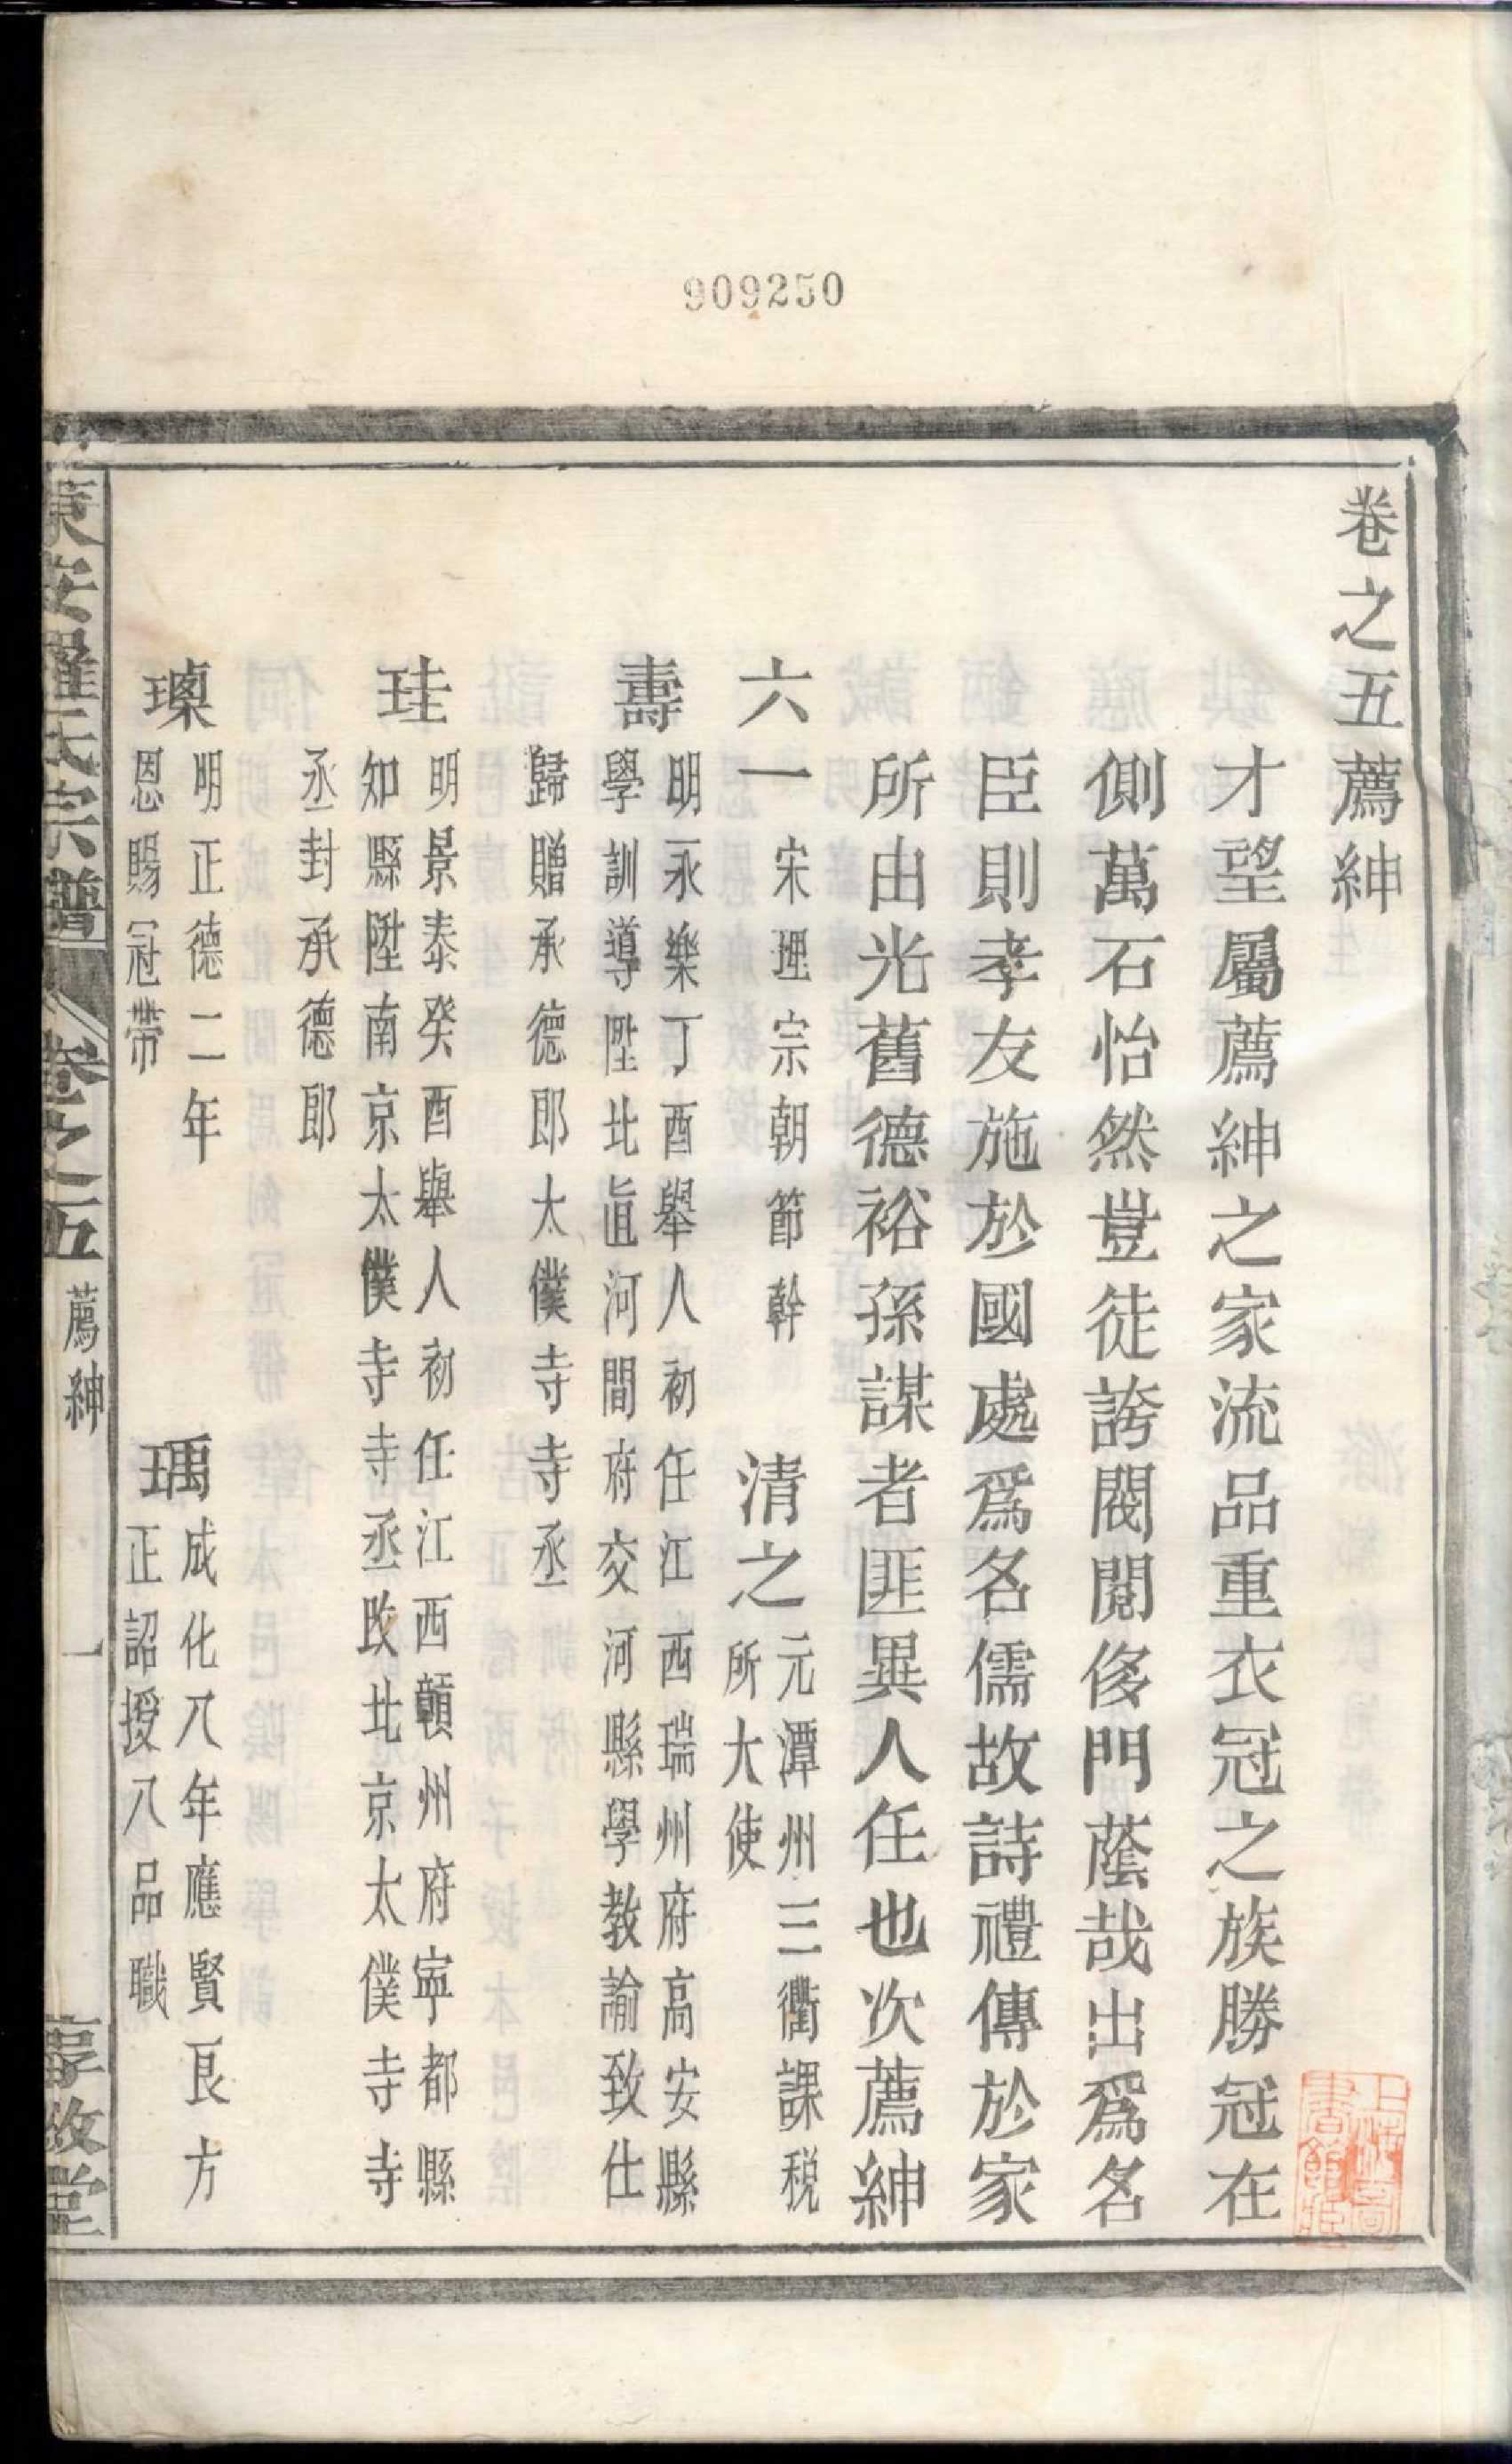 909250
卷之五薦紳
才望屬薦紳之家流品重衣冠之族勝冠在
側萬石怡然豈徒誇閥閱侈門蔭哉出爲名
臣則孝友施於國處爲名儒故詩禮傳於家
所由光舊德裕孫謀者匪異人任也次薦紳
六一 宋理宗朝節幹
清之 元潭州三衢課稅
所大使
壽 明永樂丁酉舉人初任江西瑞州府高安縣
學訓導陞北直河間府交河縣學教諭致仕
歸贈承德郎太僕寺寺丞
珪 明景泰癸酉舉人初任江西贛州府寧都縣
知縣陞南京太僕寺寺丞改北京太僕寺寺
丞封承德郎
璪 明正德二年
恩賜冠帶
瑀 成化八年應賢良方
正詔授八品職
安羅氏宗譜 卷之五 薦紳 一 敦堂